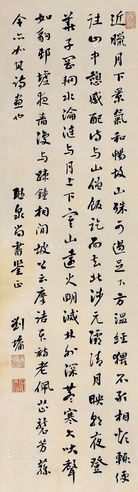 近臘月下景氣和暢故山殊可過足下方温經猥不敢相煩輒便
往山中憩感配寺與山僧飯訖而去北涉元灞清月映郭夜登
華子岡輞水淪漣與月上下寒山遠火明滅林外深巷寒犬吠聲
如豹邨墟夜舂復與疎鐘相間坡公云摩詰本詩老佩芷襲芳蓀
今亦見詩也
尚書鑒正
劉墉